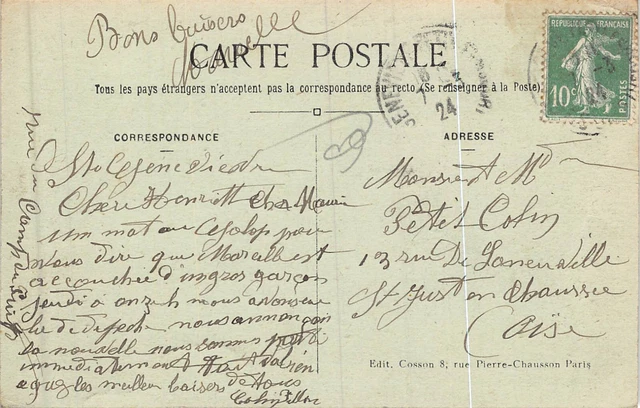 Bons baisers
CARTE POSTALE
Tous les pays étrangers n'acceptent pas la correspondance au recto (Se renseigner à la Poste)
REPUBLIQUE FRANÇAISE
10c
POSTES
24
CORRESPONDANCE
ADRESSE
rue du Camp
Ste Genevieve
Chere Henriett cher Mauri
un mot au galop pour
vous dire que Marcelle est
accouchée d'un gros garçon
jeudi à onze h nous avons reu
de depeche nous annonçon
la nouvelle nous somme parti
immediatement tout va bien
les meilleur baisers de tous
Colin
Monsieur et Mme
Petit Colin
13 rue De Laneuville
St Just en Chaussee
Oise
Edit. Cosson 8; rue Pierre-Chausson Paris